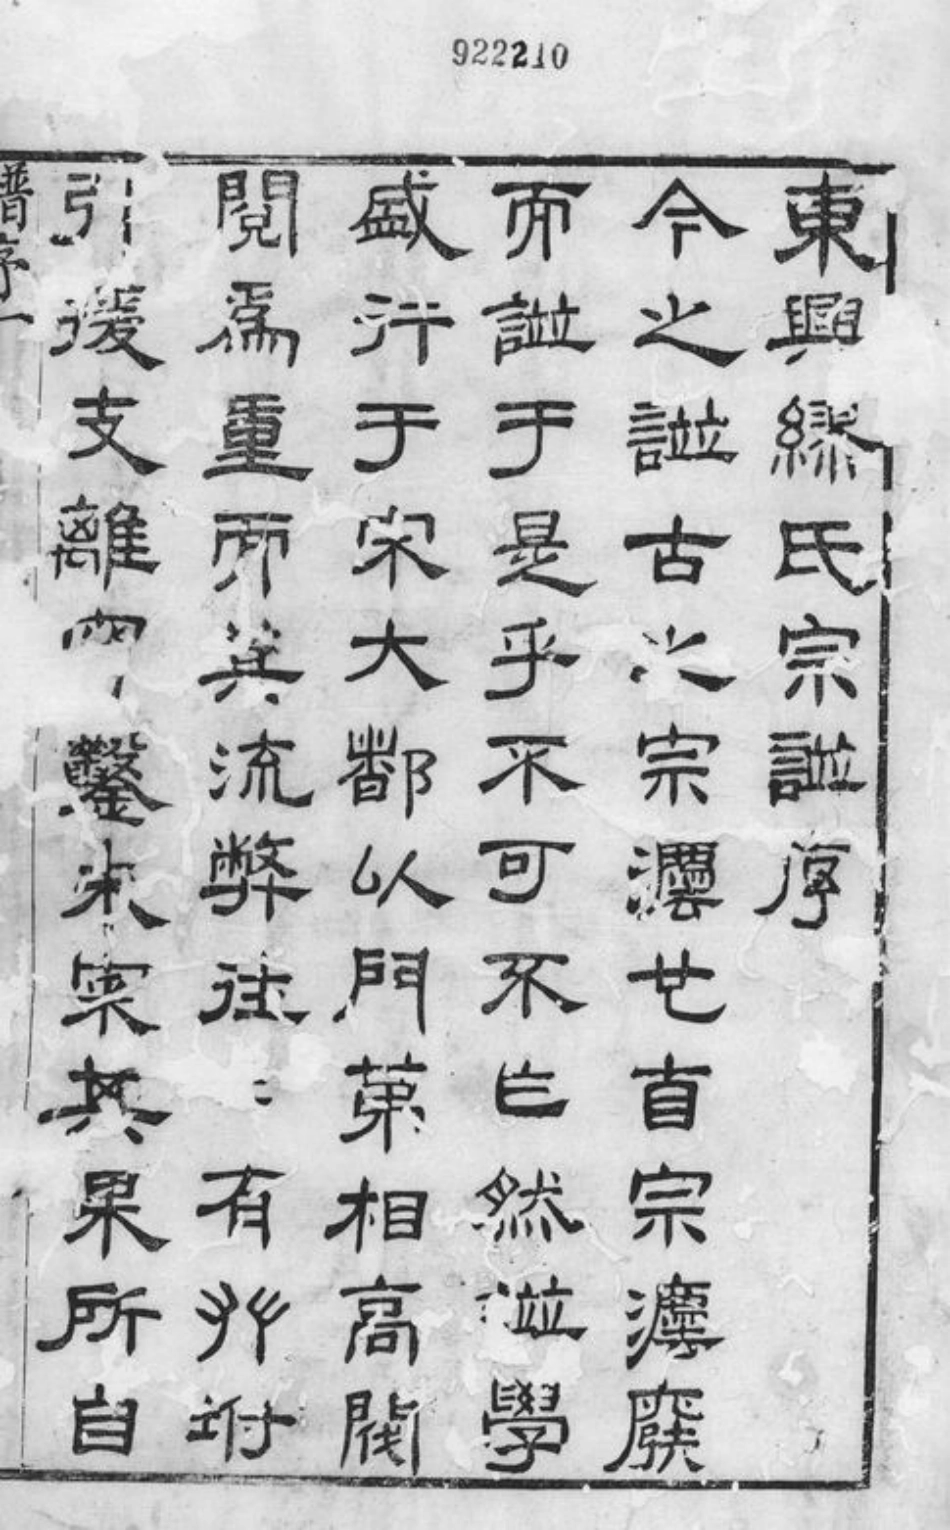 922210
東興繆氏宗譜序
今之譜古之宗灋也自宗灋廢
而譜于是乎不可不乍然譜學
盛行于宋大都以門第相高閥
閱爲重而其流弊往〻有𠬜坿
引援支離穿鑿未宷其果所自
譜序 一